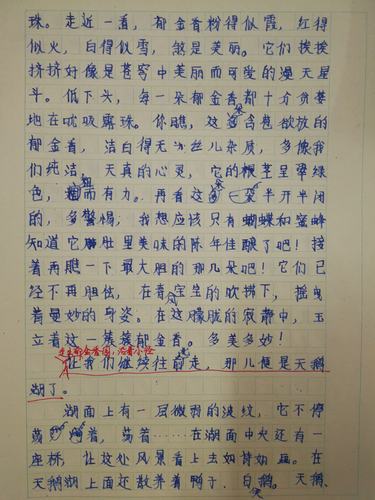 珠。走近一看，郁金香粉得似霞，红得
似火，白得似雪，煞是美丽。它们挨挨
挤挤好像是苍穹中美丽而可爱的漫天星
斗。低下头，每一朵郁金香都十分贪婪
地在吮吸露珠。你瞧，这朵含苞欲放的
郁金香，洁白得无一丝儿杂质，多像我
们纯洁、天真的心灵，它的根茎呈翠绿
色，粗而有力。再看这朵半开半闭
的，多警惕；我想应该只有蝴蝶和蜜蜂
知道它肚里美味的陈年佳酿了吧！接
着再瞧一下最大胆的那几朵吧！它们已
经不再胆怯，在春风的吹拂下，摇曳
着曼妙的身姿。在这朦胧的寂静中，玉
立着这一簇簇郁金香。多美多妙！
走出郁金香园，沿着小径
让我们继续往前走，那儿便是天鹅
湖了。
湖面上有一层微弱的波纹，它不停
荡着，荡着……在湖面中央还有一
座桥，让这处风景看上去如诗如画。在
天鹅湖上面还散养着鸭子、白鹅。天鹅、